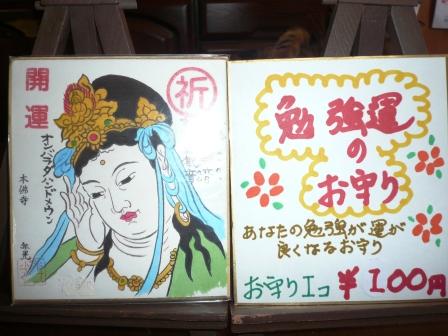 開運
オンバラダハンドメイウン
木佛寺
祈
勉強運
の
お守り
あなたの勉強が運が
良くなるお守り
お守り1コ ¥100円